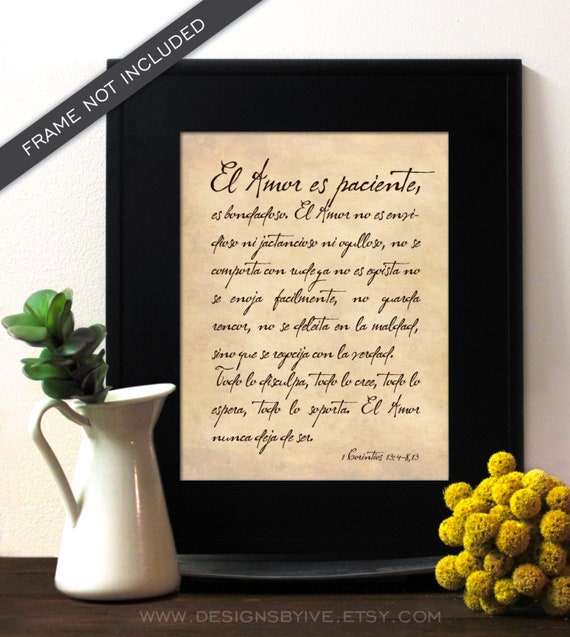 FRAME NOT INCLUDED
El Amor es paciente,
es bondadoso. El Amor no es envi-
dioso ni jactancioso ni ogulloso, no se
comporta con rudeza no es egoista no
se enoja facilmente, no guarda
rencor, no se deleita en la maldad,
sino que se regocija con la verdad.
Todo lo disculpa, todo lo cree, todo lo
espera, todo lo soporta. El Amor
nunca deja de ser.
1 Corintios 13:4-8,13
WWW.DESIGNSBYIVE.ETSY.COM